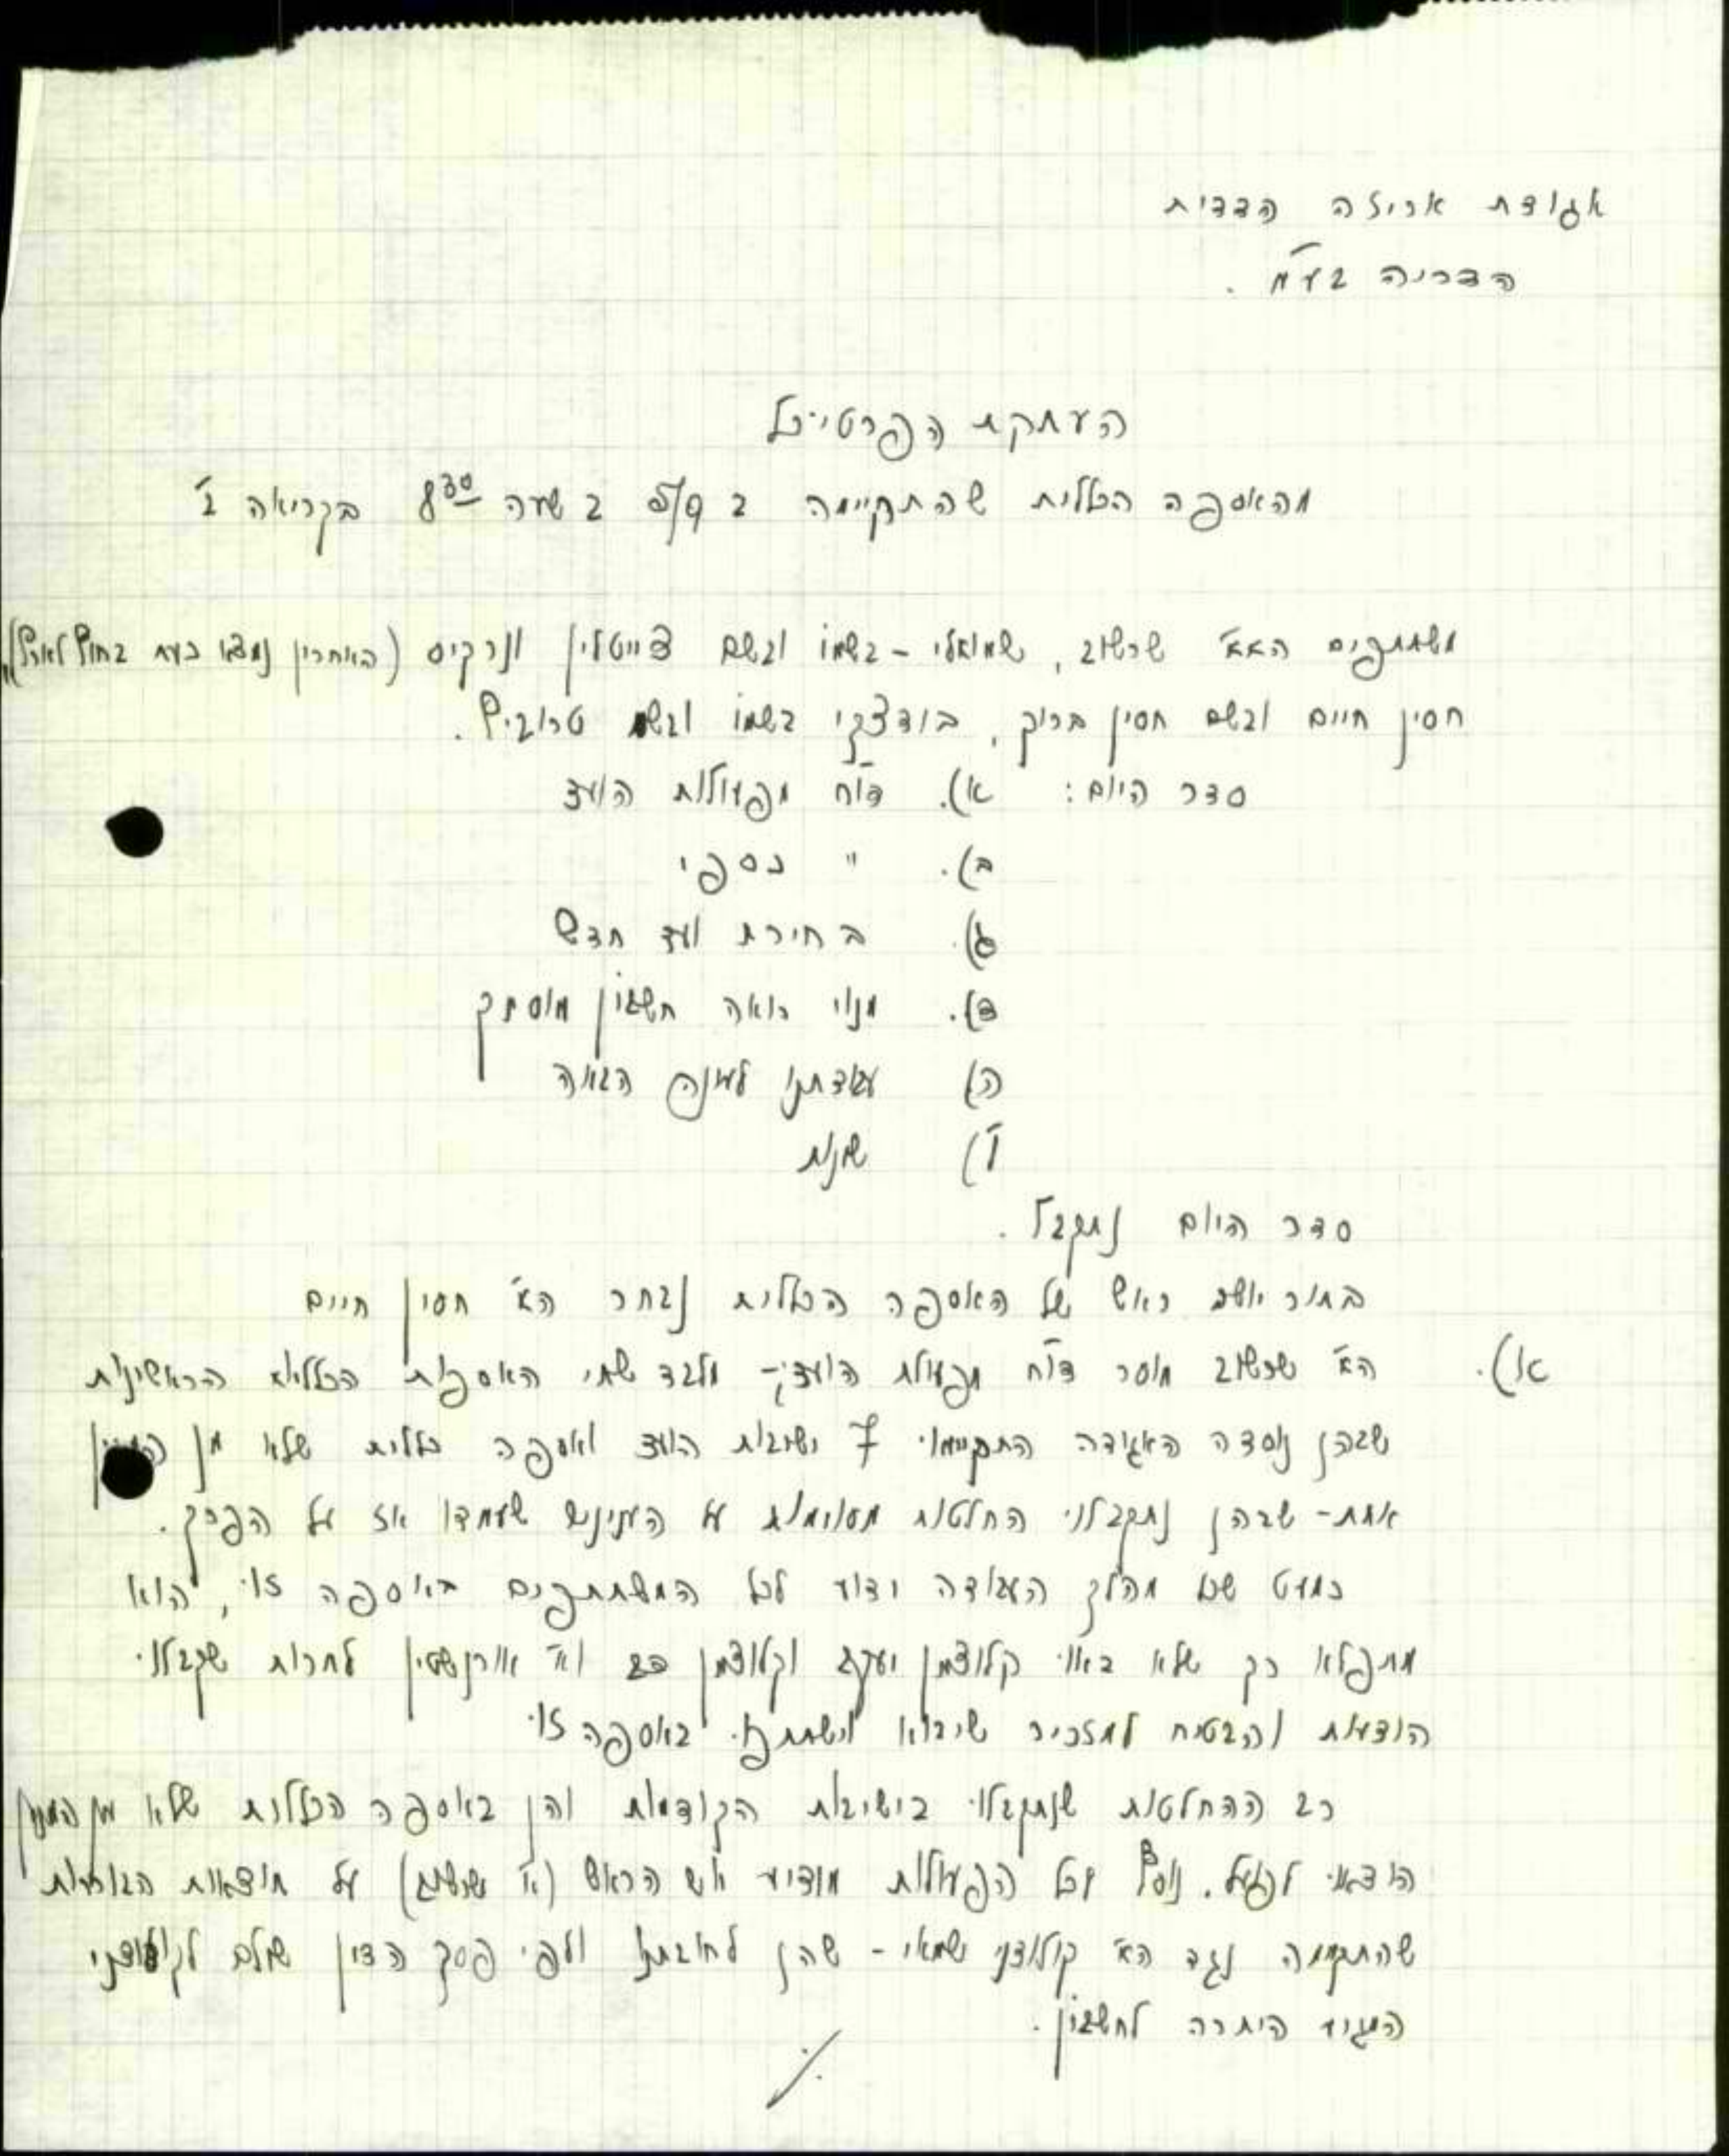 אגודת אריזה הדדית
הדריה בע"מ .
העתקת הפרטיכל
מהאספה הכללית שהתקיימה ב 5/9 ב שעה 8³⁰ בקריאה ב'
משתתפים הא"א שרשוב, שמואלי - בשמו ובשם צייטלין ונרקיס (האחרון נמצא כעת בחוץ לארץ),
חסין חיים ובשם חסין ברוק, בודצקי בשמו ובשם טרוביץ.
סדר היום: א). דו"ח מפעולות הועד
ב). " כספי
ג). בחירת ועד חדש
ד). מנוי רואה חשבון מוסמך
ה) עבודתנו לעונה הבאה
ו') שונות
סדר היום נתקבל .
בתור יושב ראש של האספה הכללית נבחר הא' חסין חיים
א). הא' שרשוב מוסר דו"ח מפעולת הועד;- מלבד שתי האספות הכלליות הראשונות
שבהן נוסדה האגודה התקיימו 7 ישיבות הועד ואספה כללית שלא מן
אחת - שבהן נתקבלו החלטות מסוימות על הענינים שעמדו אז על הפרק.
כמעט שכל מהלך העבודה ידוע לכל המשתתפים באספה זו, הוא
מתפלא רק שלא באו קלוצמן יעקב וקלוצמן וא' אורנשטין למרות שקבלו
הודעות והבטיח למזכיר שיבוא וישתתף באספה זו
רב ההחלטות שנתקבלו בישיבות הקודמות והן באספה הכללית שלא מן המנין
הוצאו לפועל. נוסף לכל הפעולות מודיע יוש הראש (א' שרשוב) על תוצאות הבוררות
שהתקימה נגד הא' שמאי - שהן לחובתנו ולפי פסק הדין שולם
המגיע היתרה לחשבון.
./.